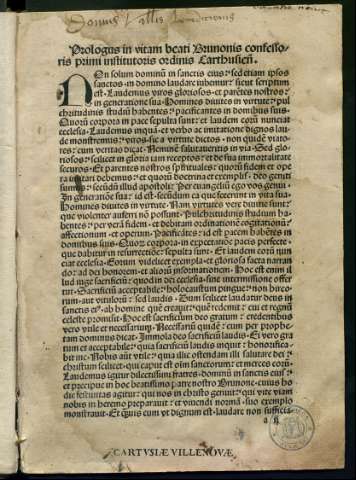 Domus Vallis
Prologus in vitam beati Brunonis confesso-
ris primi institutoris ordinis Carthusieñ.
NOn solum dominū in sanctis eius: sed etiam ipsos
sanctos in domino laudare iubemur: sicut scriptum
est. Laudemus viros gloriosos et parētes nostros:
in generatione sua. Homines diuites in virtute: pul
chritudinis studiū habentes: pacificantes in domibus suis.
Quorū corpora in pace sepulta sunt: et laudem eorū nunciat
ecclesia. Laudemus inquā et verbo ac imitatione dignos lau
de monstremus: viros sic a virtute dictos non quidē viato-
res: cum veritas dicat. Neminē salutaueritis in via. Sed glo
riosos: scilicet in gloria iam receptos: et de sua immortalitate
securos. Et parentes nostros spirituales: quorū fidem et ope
ra imitari debemus: et quorū doctrina et exemplis deo geniti
sumus: secūdū illud apostoli: Per euangeliū ego vos genui.
In generatiōe sua: id est: secūdum ea que fecerunt in vita sua.
Homines diuites in virtute. Nam virtutes vere diuitie sunt:
que violenter auferri nō possunt. Pulchritudinis studium ha-
bentes: per verā fidem et debitam ordinationem cogitationū
affectionum et operum. Pacificāres: id est pacem habētes in
domibus suis. Quorū corpora in expectatiōe pacis perfecte
que dabitur in resurrectiōe: sepulta sunt. Et laudem eorū nun
ciat ecclesia. Eorum videlicet exempla et gloriosa facta narran
do: ad dei honorem et alioru informationem. Hoc est enim il
lud iuge sacrificiū: quod in dei ecclesia sine intermissione offer
tur. Sacrificiū acceptabile: holocaustum pingue: non hirco-
rum aut vitulorū: sed laudis. Dum scilicet laudatur deus in
sanctis et ab homine quē creauit: quē redemit: cui et regnū
celeste promisit. Hoc est sacrificium deo gratum: credentibus
vero vtile et necessarium. Necessariū quidē: cum per prophe-
tam dominus dicat. Immola deo sacrificiū laudis. Ei vero gra
tum et acceptabile: quia sacrificiū laudis inquit honorifica-
bit me. Nobis aūt vtile: quia illic ostendam illi salutare dei:
christum scilicet: qui caput est oīm sanctorum et merces eorū.
Laudemus igitur dilectissimi fratres dominū in sanctis eius:
et precipue in hoc beatissimo patre nostro Brunone: cuius ho
die festiuitas agitur: qui nos in christo genuit: qui vite viam
nobis in heremo preparauit: et viuendi normā suo exemplo
monstrauit. Et quis eum vt dignum est laudare non sufficia
a ij
CARTVSIÆ VILLENOVÆ.